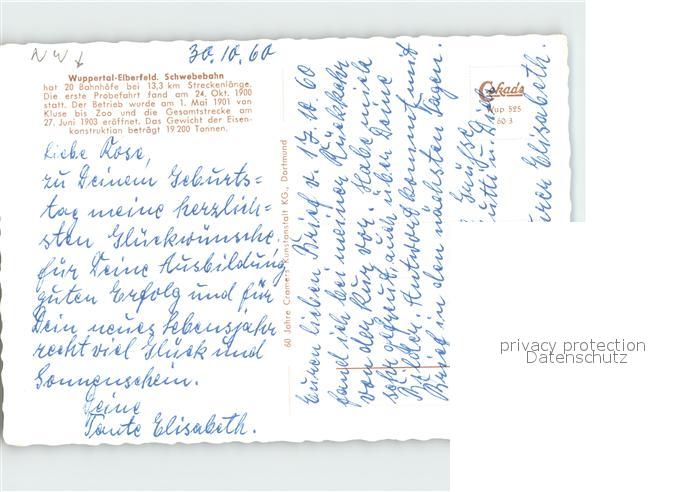 NW
30.10.60
Wuppertal-Elberfeld. Schwebebahn
hat 20 Bahnhöfe bei 13,3 km Streckenlänge.
Die erste Probefahrt fand am 24. Okt. 1900
statt. Der Betrieb wurde am 1. Mai 1901 von
Kluse bis Zoo und die Gesamtstrecke am
27. Juni 1903 eröffnet. Das Gewicht der Eisen-
konstruktion beträgt 19200 Tonnen.
Liebe Rose,
zu Deinem Geburts=
tag meine herzlich=
sten Glückwünsche.
für Deine Ausbildung
guten Erfolg und für
Dein neues Lebensjahr
recht viel Glück und
Sonnenschein.
Deine
Tante Elisabeth.
60 Jahre Cramers Kunstanstalt KG., Dortmund
Euren lieben Brief v. 17.10.60
fand ich bei meiner Rückkehr
von der Kur vor. Habe mich
sehr gefreut, auch über Deine
Bilder. Antwort kommt mit
Brief in den nächsten Tagen.
Grüsse
Mutti u. Dich
Eurer Elisabeth.
Cekade
Wup 525
60 3
privacy protection
Datenschutz